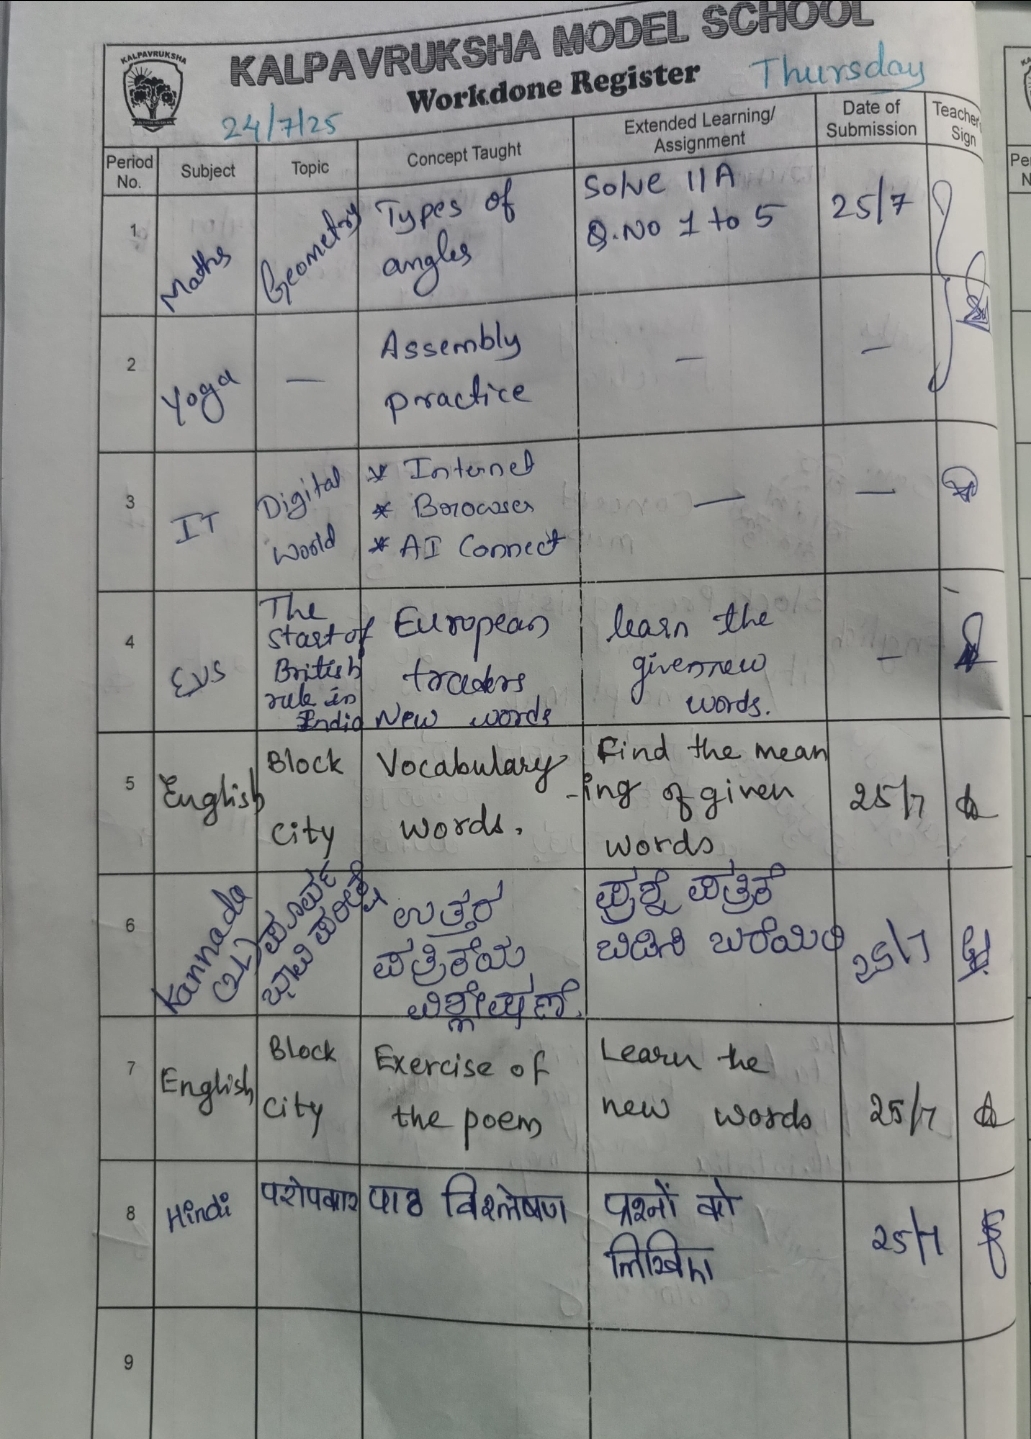 KALPAVRUKSHA
KALPAVRUKSHA MODEL SCHOOL
Workdone Register
Thursday
24/7/25
Period No.
Subject
Topic
Concept Taught
Extended Learning/ Assignment
Date of Submission
Teacher
Sign
1
Maths
Geometry
Types of
angles
Solve 11A
Q.No 1 to 5
25/7
2
Yoga
—
Assembly
practice
—
—
3
IT
Digital
World
* Internet
* Borowses
* AI Connect
—
—
4
EVS
The
start of
British
rule in
India
European
traders
New words
learn the
given new
words.
–
5
English
Block
City
Vocabulary
words.
Find the mean
-ing of given
words
25/7
6
Kannada
(2L)
ಪೂರ್ವ
ಭಾವಿ ಪರೀಕ್ಷೆ
ಉತ್ತರ
ಪತ್ರಿಕೆಯ
ವಿಶ್ಲೇಷಣೆ.
ಪ್ರಶ್ನೆ ಪತ್ರಿಕೆ
ಬಿಡಿಸಿ ಬರೆಯಿರಿ
25/7
7
English
Block
City
Exercise of
the poem
Learn the
new words
25/7
8
Hindi
परोपकार
पाठ विश्लेषण
प्रश्नों को
लिखिए
25/7
9